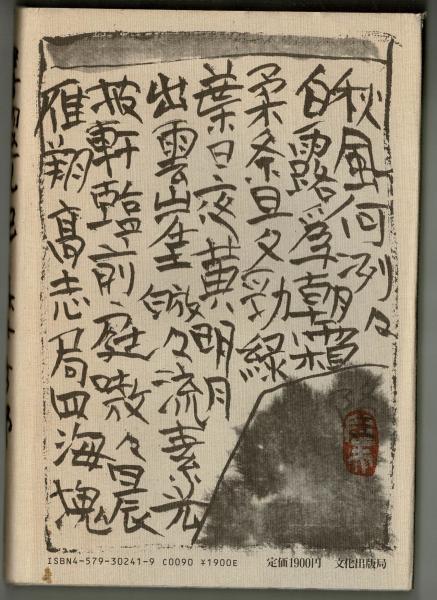 秋風何冽々
白露爲朝霜
柔条旦夕勁緑
葉日夜黄明月
出雲崖皦々流素光
披軒臨前庭嗷々晨
雁翔高志局四海塊
ISBN4-579-30241-9 C0090 ¥1900E 定価1900円 文化出版局